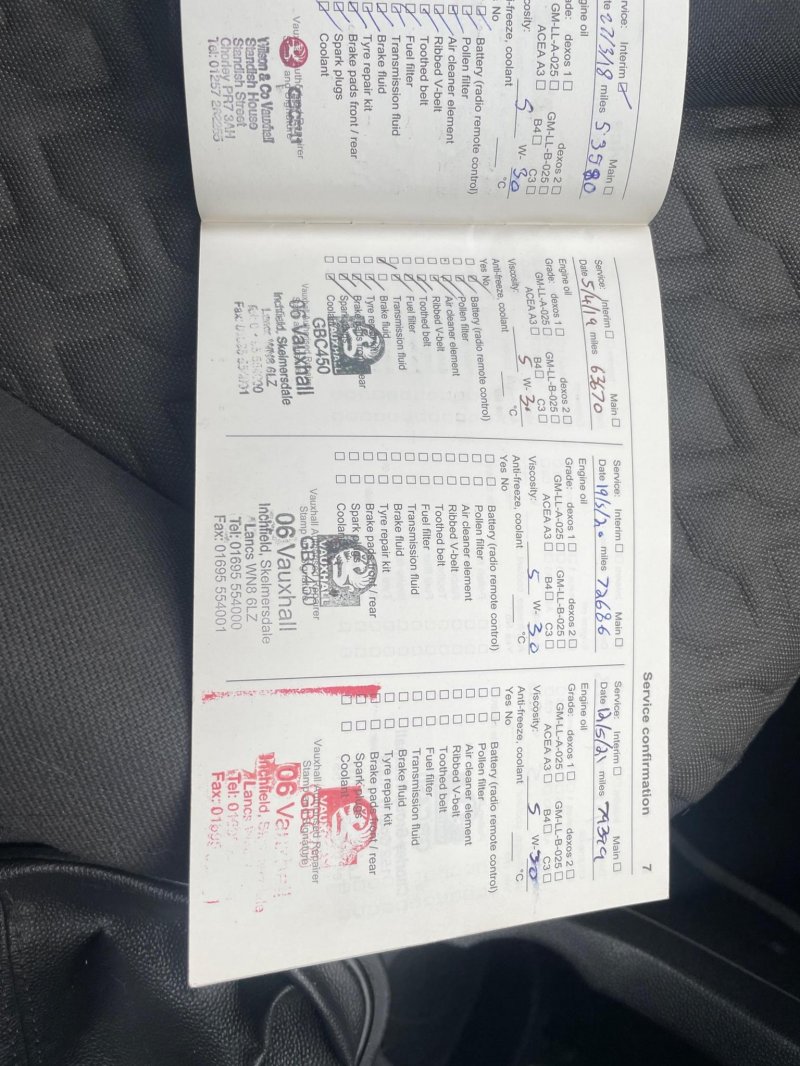 Service: Interim Main
Date 27/3/18 miles 53580
ngine oil
ade: dexos 1 dexos 2
GM-LL-A-025 GM-LL-B-025
ACEA A3 B4 C3
viscosity: 5 W- 30
i-freeze, coolant °C
No
Battery (radio remote control)
Pollen filter
Air cleaner element
Ribbed V-belt
Toothed belt
Fuel filter
Transmission fluid
Brake fluid
Tyre repair kit
Brake pads front / rear
Spark plugs
Coolant
Standish House
Standish Street
Chorley PR7 3AH
Service confirmation 7
Service: Interim Main
Date 5/4/19 miles 63670
Engine oil
Grade: dexos 1 dexos 2
GM-LL-A-025 GM-LL-B-025
ACEA A3 B4 C3
Viscosity: 5 W- 30
Anti-freeze, coolant °C
Yes No
Battery (radio remote control)
Pollen filter
Air cleaner element
Ribbed V-belt
Toothed belt
Fuel filter
Transmission fluid
Brake fluid
Tyre repair
Brake
Spark
Coolant
GBC450
06 Vauxhall
Inchfield, Skelmersdale
Lancs WN8 6LZ
Service: Interim Main
Date 19/5/20 miles 72686
Engine oil
Grade: dexos 1 dexos 2
GM-LL-A-025 GM-LL-B-025
ACEA A3 B4 C3
Viscosity: 5 W- 30
Anti-freeze, coolant °C
Yes No
Battery (radio remote control)
Pollen filter
Air cleaner element
Ribbed V-belt
Toothed belt
Fuel filter
Transmission fluid
Brake fluid
Tyre repair kit
Brake pads front / rear
Spark
Coolant
VAUXHALL
GBC450
06 Vauxhall
Inchfield, Skelmersdale
Lancs WN8 6LZ
Tel: 01695 554000
Fax: 01695 554001
Service: Interim Main
Date 12/5/21 miles 79379
Engine oil
Grade: dexos 1 dexos 2
GM-LL-A-025 GM-LL-B-025
ACEA A3 B4 C3
Viscosity: 5 W- 30
Anti-freeze, coolant °C
Yes No
Battery (radio remote control)
Pollen filter
Air cleaner element
Ribbed V-belt
Toothed belt
Fuel filter
Transmission fluid
Brake fluid
Tyre repair kit
Brake pads front / rear
Spark
Coolant
Vauxhall Authorised Repairer
06
Inchfield,
Lancs
Tel:
Fax: